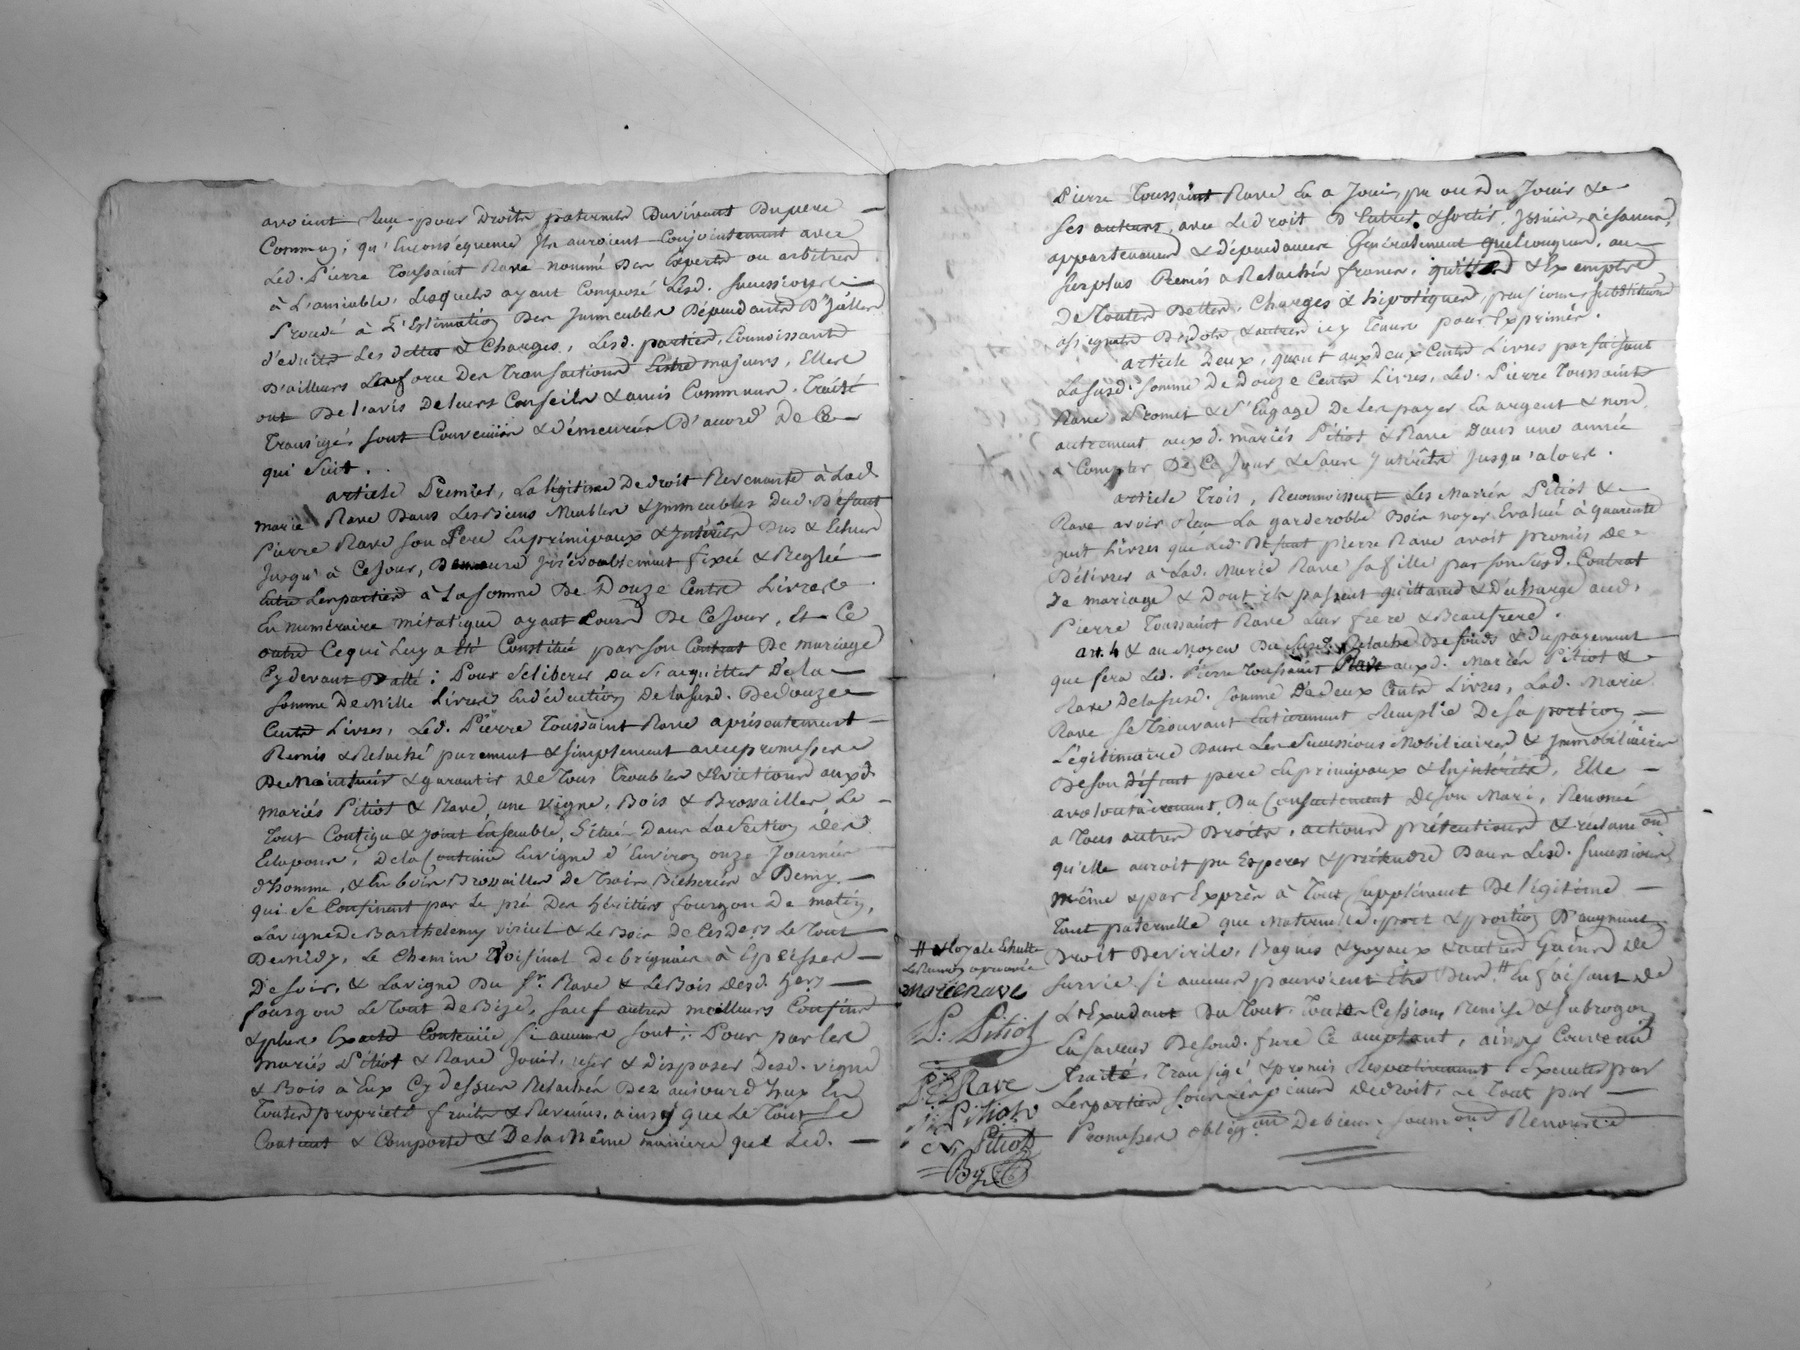 avoient Reçu pour Droits paternels Duvivant Dupere
Commun; qu'Enconséquence Ils auroient Conjointement avec
Led. Pierre Toussaint Rave nommé Des Experts ou arbitres
à L'amiable, Lesquels ayant Composé Lesd. successions
Procédé à L'Estimation Des Immeubles Dépendants D'Icelles
d'eduits Les dettes & Charges, Lesd. parties, Connoissants
D'ailleurs Laforce Des Transactions Entre majeurs, Elles
ont De l'avis De leurs Conseils & amis Communs. Traité
Transigé, sont Convenües & Démeurées D'acord De Ce
qui suit.
article Premier, La légitime De droit Revenante à Lad.
marie Rave Dans Les Biens Meubles & Immeubles Dud. Défunt
Pierre Rave son Pere Enprincipaux & Intérêts Dus & Echus
Jusqu'à Cejour, Demeure Irrévocablement fixée & Reglée
Entre Lesparties à Lasomme De Douze Cents Livres
En numéraire métalique ayant Cours De Cejour, Et Ce
outre Cequi Luy a Eté Constitué par son Contrat De mariage
Cydevant Datté; Pour Selibérer ou s'acquitter De la
somme Demille Livres Endéduction De lasusd. Dedouze
Cents Livres, Led. Pierre Toussaint Rave aprésentement
Remis & Relaché purement & simplement avecpromesse
De Maintenir & garantir De Tous Troubles & Evictions auxd.
mariés Pitiot & Rave, une vigne, Bois & Brossailles Le
Tout Contigu & joint Ensemble, Situé Dans La Section des
Echapoux, De la Contenüe Envigne d'Environ onze Journées
d'homme, & En bois Brossailles De Trois Bicherées & Demy
qui se Confinent par Le pré Des héritiers fourgon De matin,
Lavigne De Barthelemy viriel & Le Bois De Cesders Le Tout
De Midy, Le Chemin Voisinal De brignais à Epeisses
De soir, & Lavigne Du Sr. Rave & Le Bois Desd. hers
fourgon Le Tout De Bize, sauf autres meilleurs Confins
& plus Exacte Contenüe si aucuns sont; Pour par les
mariés Pitiot & Rave Jouir, user & disposer Desd. vigne
& Bois à Eux Cy dessus Relachés Dez aujourd'hux En
Toutes propriété fruits & Revenus, ainsy que Le Tout se
Contient & Comporte & De la Même maniere que Led.
Pierre Toussaint Rave En a Joui, pu ou du Jouir &
ses auteurs, avec Ledroit D'Entrée & sortie, Issües, aisances,
appartenances & dépendances Généralement quelconques, au
surplus Remis & Relachés francs, quittes & Exempts
De Toutes Dettes, Charges & hipotèques, pensions, substitutions
assignats De dots & autres icy Tenus pour Exprimés.
article Deux, quant auxdeux Cents Livres parfaisant
Lasusd. somme De Douze Cents Livres, Led. Pierre Toussaint
Rave Promet & S'Engage De Les payer En argent & non
autrement auxd. mariés Pitiot & Rave Dans une année
à Compter De Ce Jour & Sans Intérêts Jusqu'alors.
article Trois, Reconnoissent Les Mariés Pitiot &
Rave avoir Reçu La garderobbe Bois noyer Evaluée à quarente
huit Livres que Led. Défunt pierre Rave avoit promis De
Délivrer à Lad. Marie Rave sa fille par son Susd. Contrat
De mariage & Dont ils passent quittance & Décharge aud.
Pierre Toussaint Rave Leur frere & Beaufrere.
art. 4 & au Moyen Du Susd. Relache De fonds & du payement
que fera Led. Pierre Toussaint Rave auxd. Mariés Pitiot &
Rave Delasusd. somme De deux Cents Livres, Lad. Marie
Rave se Trouvant Entierement Remplie De sa portion
Légitimaire Dans Les Successions Mobiliaires & Immobiliaires
De son Défunt pere Enprincipaux & Enintérêts, Elle
avolontairement, Du Consentement De son Mari, Renoncé
a Tous autres Droits, actions prétentions & réclamons
qu'elle auroit pu Esperer & prétendre Dans Lesd. successions
même & par Exprès à Tout supplément De légitime
tant paternelle que Maternelle, part & portion D'augment
Droit De virile, Bagues & Joyaux & autres Gains De
survie si aucuns pouvoient être Dus # En faisant De
L'Excédant Du Tout, Toute Cession, Remise & subrogon
En faveur De sond. frere Ce acceptant, ainsy Convenu
Traité, Transigé & promis Respectivement Executer par
Lesparties sous Les peines De droit, Le Tout par
Promesses obligons De biens, soumons Renonces
# & loyale Echute
Le Renvoy aprouvé
marie rave
P. Pitiot
P. T. Rave
j. Pitiot
C. Pitiot